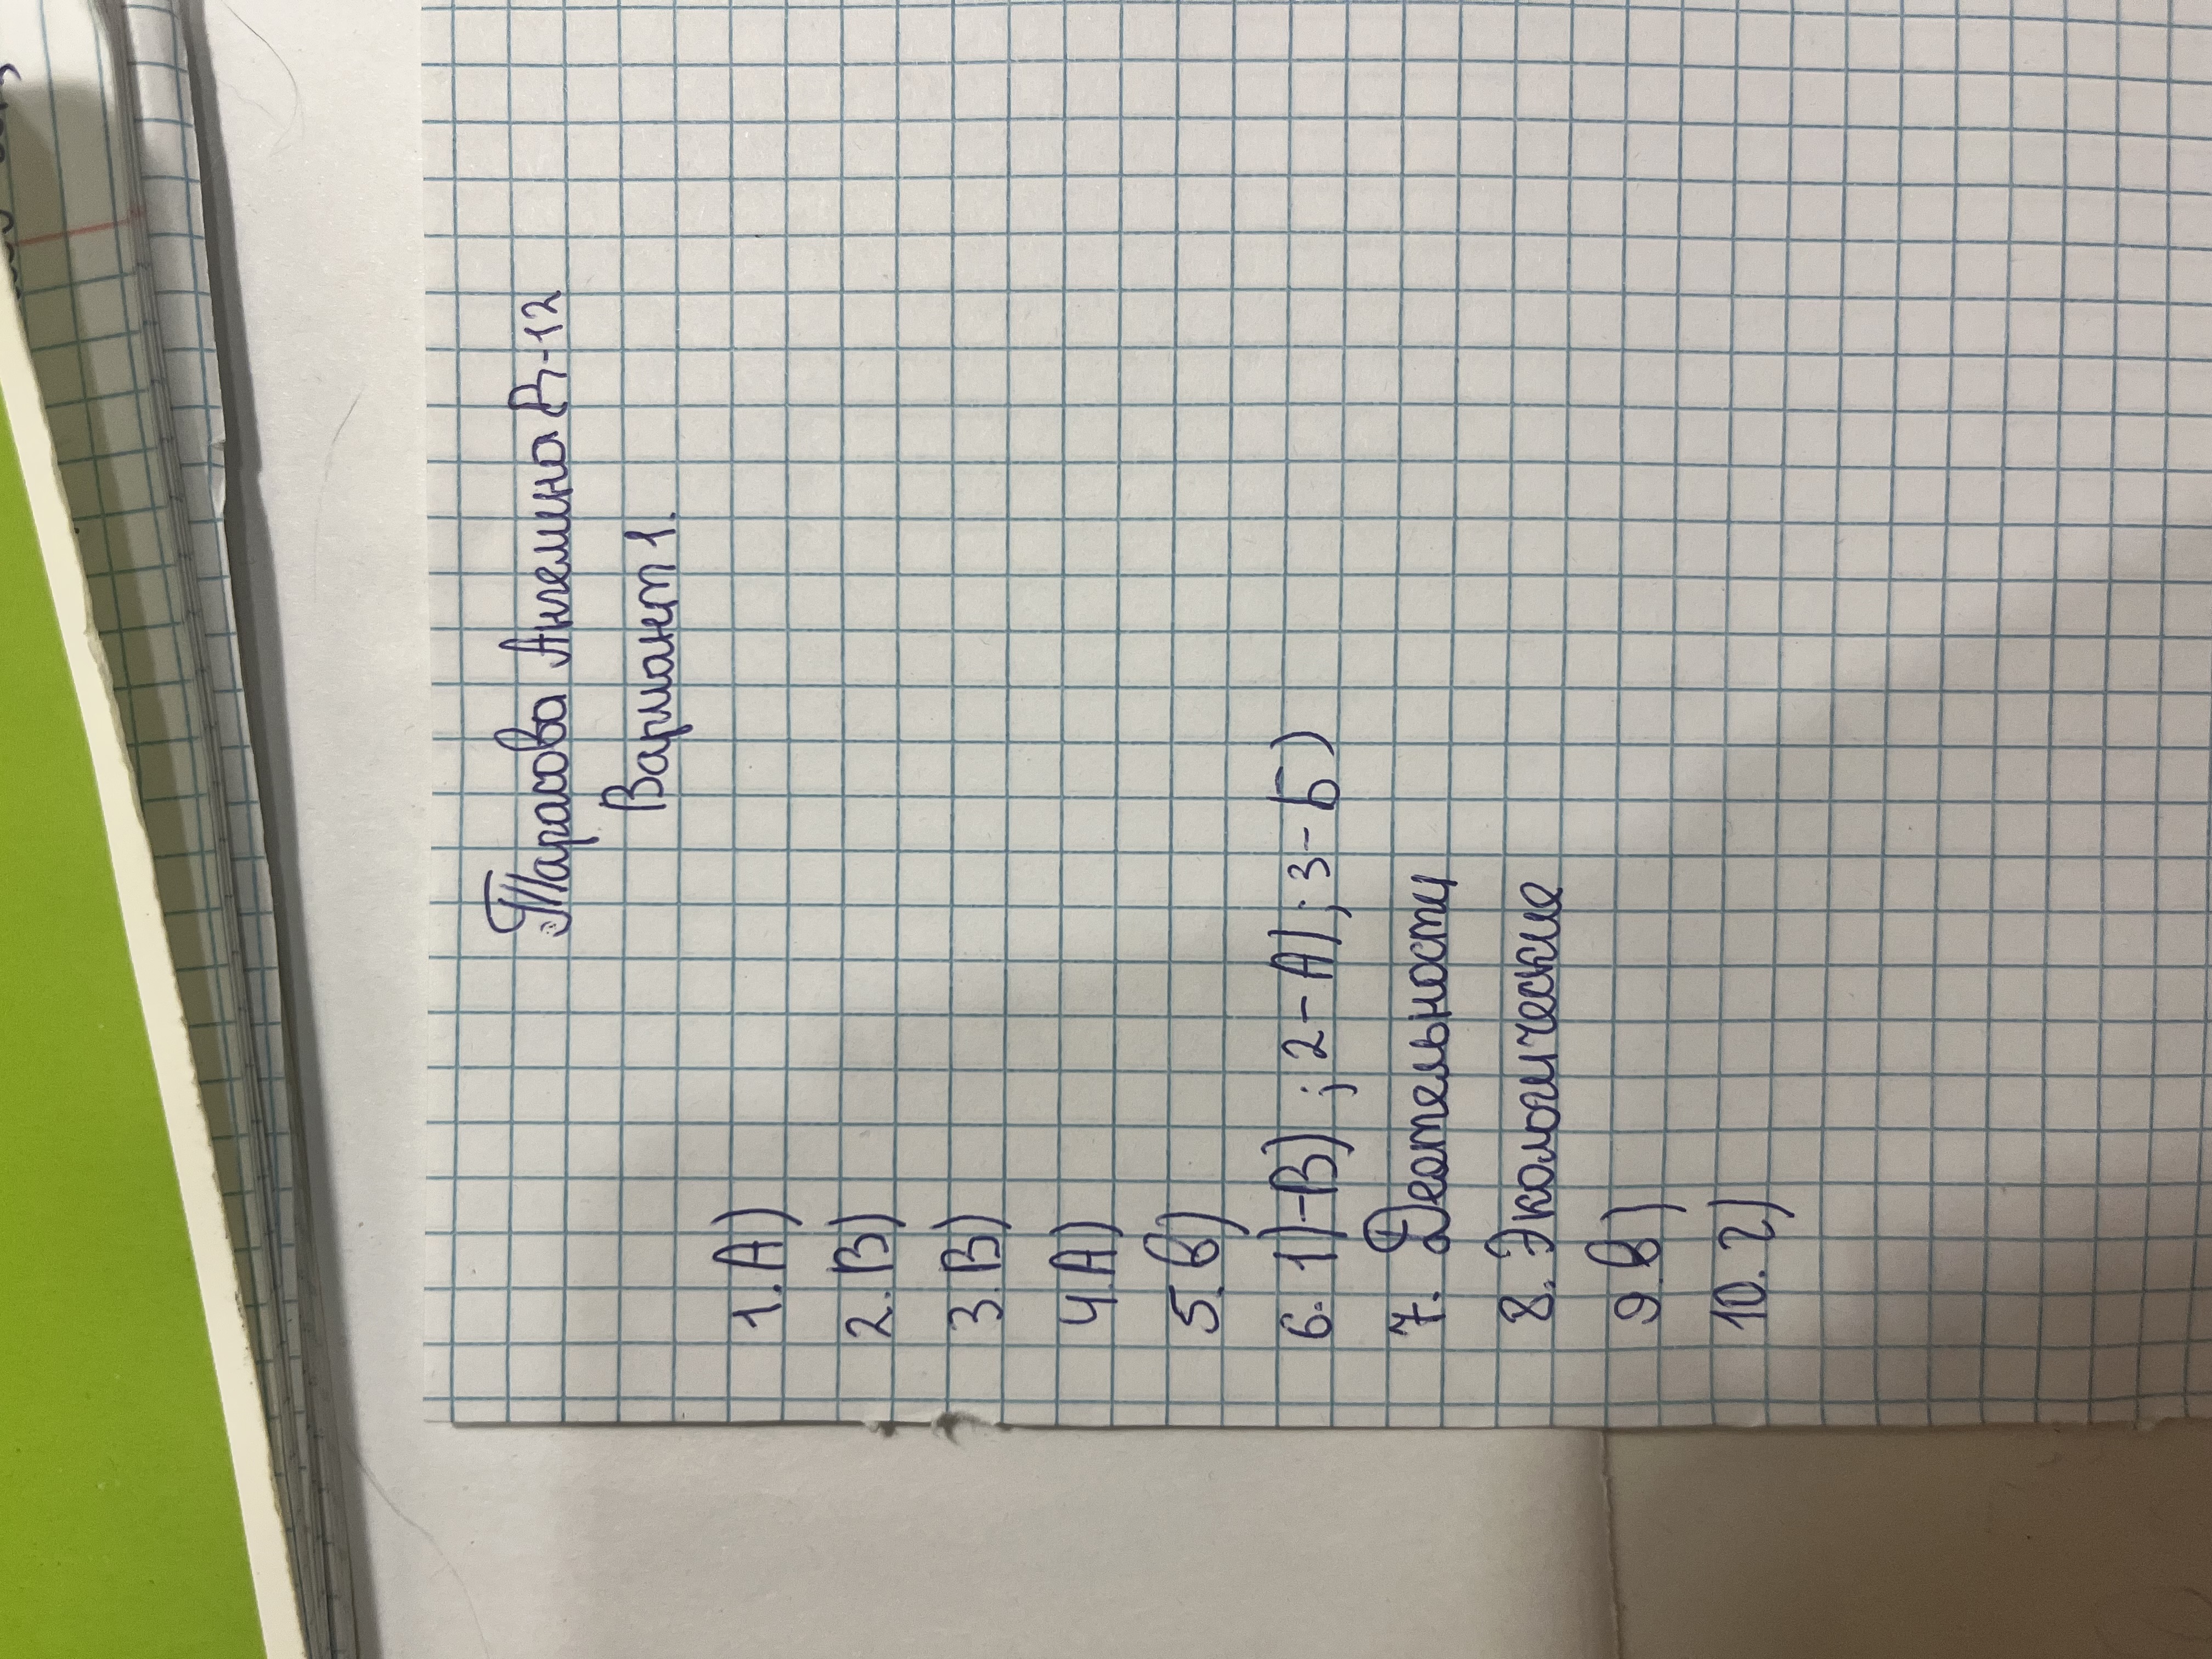 Тарасова Ангелина Д-12
Вариант 1.
1. А)
2. В)
3. В)
4. А)
5. в)
6. 1)-В) ; 2-А) ; 3-Б)
7. Деятельности
8. Экологические
9. в)
10. г)